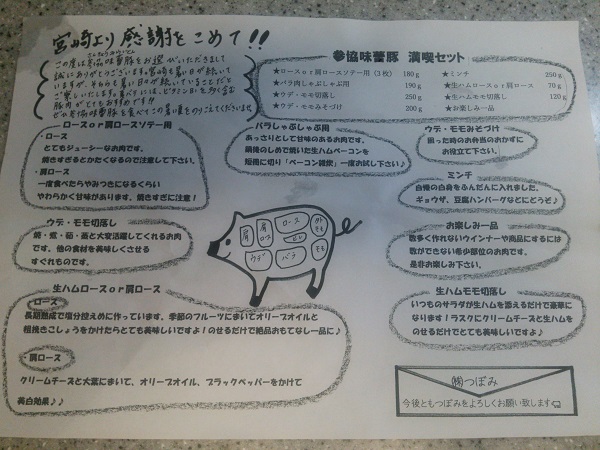 宮崎より感謝をこめて!!
参協味蕾豚 満喫セット
★ロースor肩ロースソテー用(3枚) 180g
★バラ肉しゃぶしゃぶ用 190g
★ウデ・モモ切落し 250g
★ウデ・モモみそづけ 200g
★ミンチ 250g
★生ハムロースor肩ロース 70g
★生ハムモモ切落し 120g
★お楽しみ一品
この度は参協味蕾豚をお選びいただきまして
誠にありがとうございます。宮崎も暑い日が続いて
いますが、
豚肉がとてもお勧めです!!
ロースor肩ロースソテー用
・ロース
とてもジューシーなお肉です。
焼きすぎるとかたくなるので注意して下さい。
・肩ロース
一度食べたらやみつきになるくらい
やわらかく甘味があります。焼きすぎに注意!
バラしゃぶしゃぶ用
あっさりとして甘味のあるお肉です。
鍋後のしめで焼いた生ハムベーコンを
短冊に切り「ベーコン雑炊」一度お試し下さい♪
ウデ・モモみそづけ
困った時のお弁当のおかずに
お役立て下さい。
ミンチ
自慢の白身をふんだんに入れました。
ギョウザ、豆腐ハンバーグなどにどうぞ♪
ウデ・モモ切落し
焼・煮・茹・蒸と大変活躍してくれるお肉
です。他の食材を美味しくさせる
すぐれものです。
肩
肩ロース
ロース
ヒレ
ウデ
バラ
モモ
お楽しみ一品
数多く作れないウインナーや商品にするには
数ができない希少部位のお肉です。
是非お楽しみ下さい。
生ハムロースor肩ロース
ロース
長期熟成で塩分控えめに作っています。季節のフルーツにまいてオリーブオイルと
粗挽きこしょうをかけたらとても美味しいですよ!のせるだけで絶品おもてなし一品に♪
・肩ロース
クリームチーズと大葉にまいて、オリーブオイル、ブラックペッパーをかけて
美白効果♪♪
生ハムモモ切落し
いつものサラダが生ハムを添えるだけで豪華に
なります!ラスクにクリームチーズと生ハムを
のせるだけでとても美味しいですよ♪
㈲つぼみ
今後ともつぼみをよろしくお願い致します